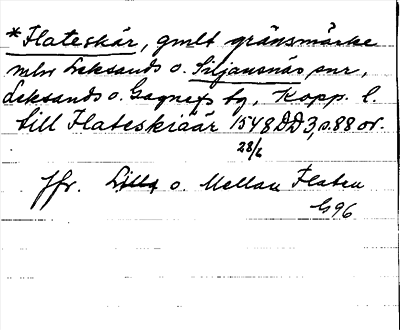 *Flateskär, gmlt gränsmärke
mln Leksands o. Siljansnäs snr,
Leksands o. Gagnefs tg, Kopp. l.
till Flateskiäär 1548 DD 3, s. 88 or.
28/6
Jfr. Lilla o. Mellan Flaten
G96